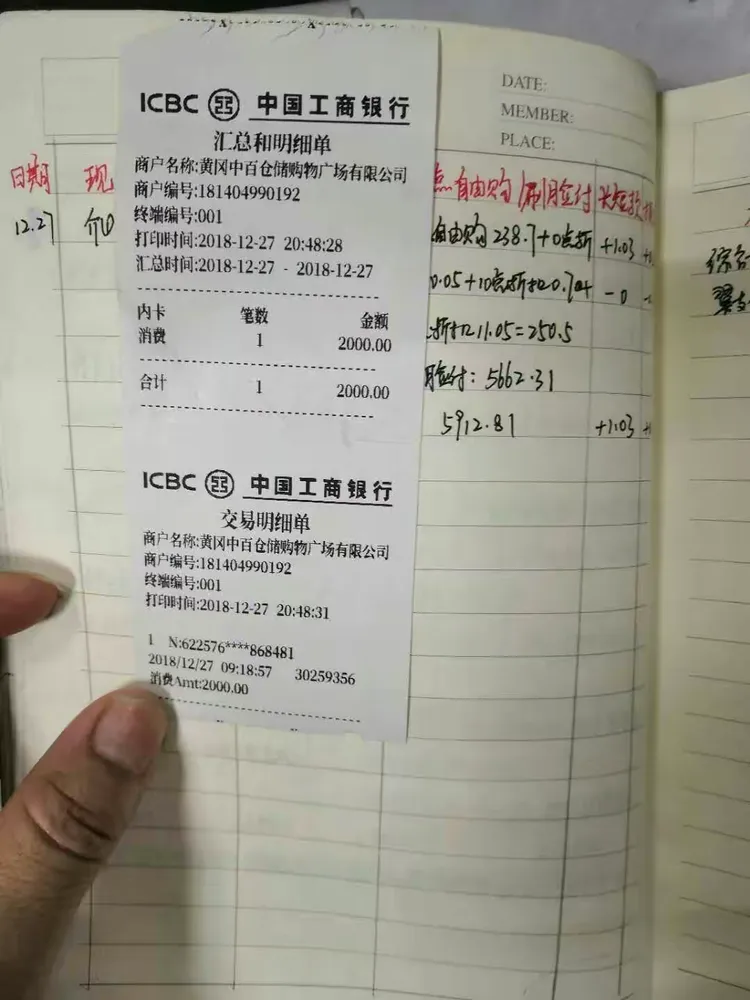 ICBC 中国工商银行
汇总和明细单
商户名称:黄冈中百仓储购物广场有限公司
商户编号:181404990192
终端编号:001
打印时间:2018-12-27 20:48:28
汇总时间:2018-12-27 - 2018-12-27
内卡 笔数 金额
消费 1 2000.00
合计 1 2000.00
ICBC 中国工商银行
交易明细单
商户名称:黄冈中百仓储购物广场有限公司
商户编号:181404990192
终端编号:001
打印时间:2018-12-27 20:48:31
1 N:622576****868481
2018/12/27 09:18:57 30259356
消费Amt:2000.00
DATE:
MEMBER:
PLACE:
日期 现 点自由购/刷脸付 长短款
12.27 自由购 238.7+0点折 +1.03
0.05+10点折扣0.7 -0
折扣11.05=250.5
脸付:5662.31
5912.81 +1.03
综合
翼支